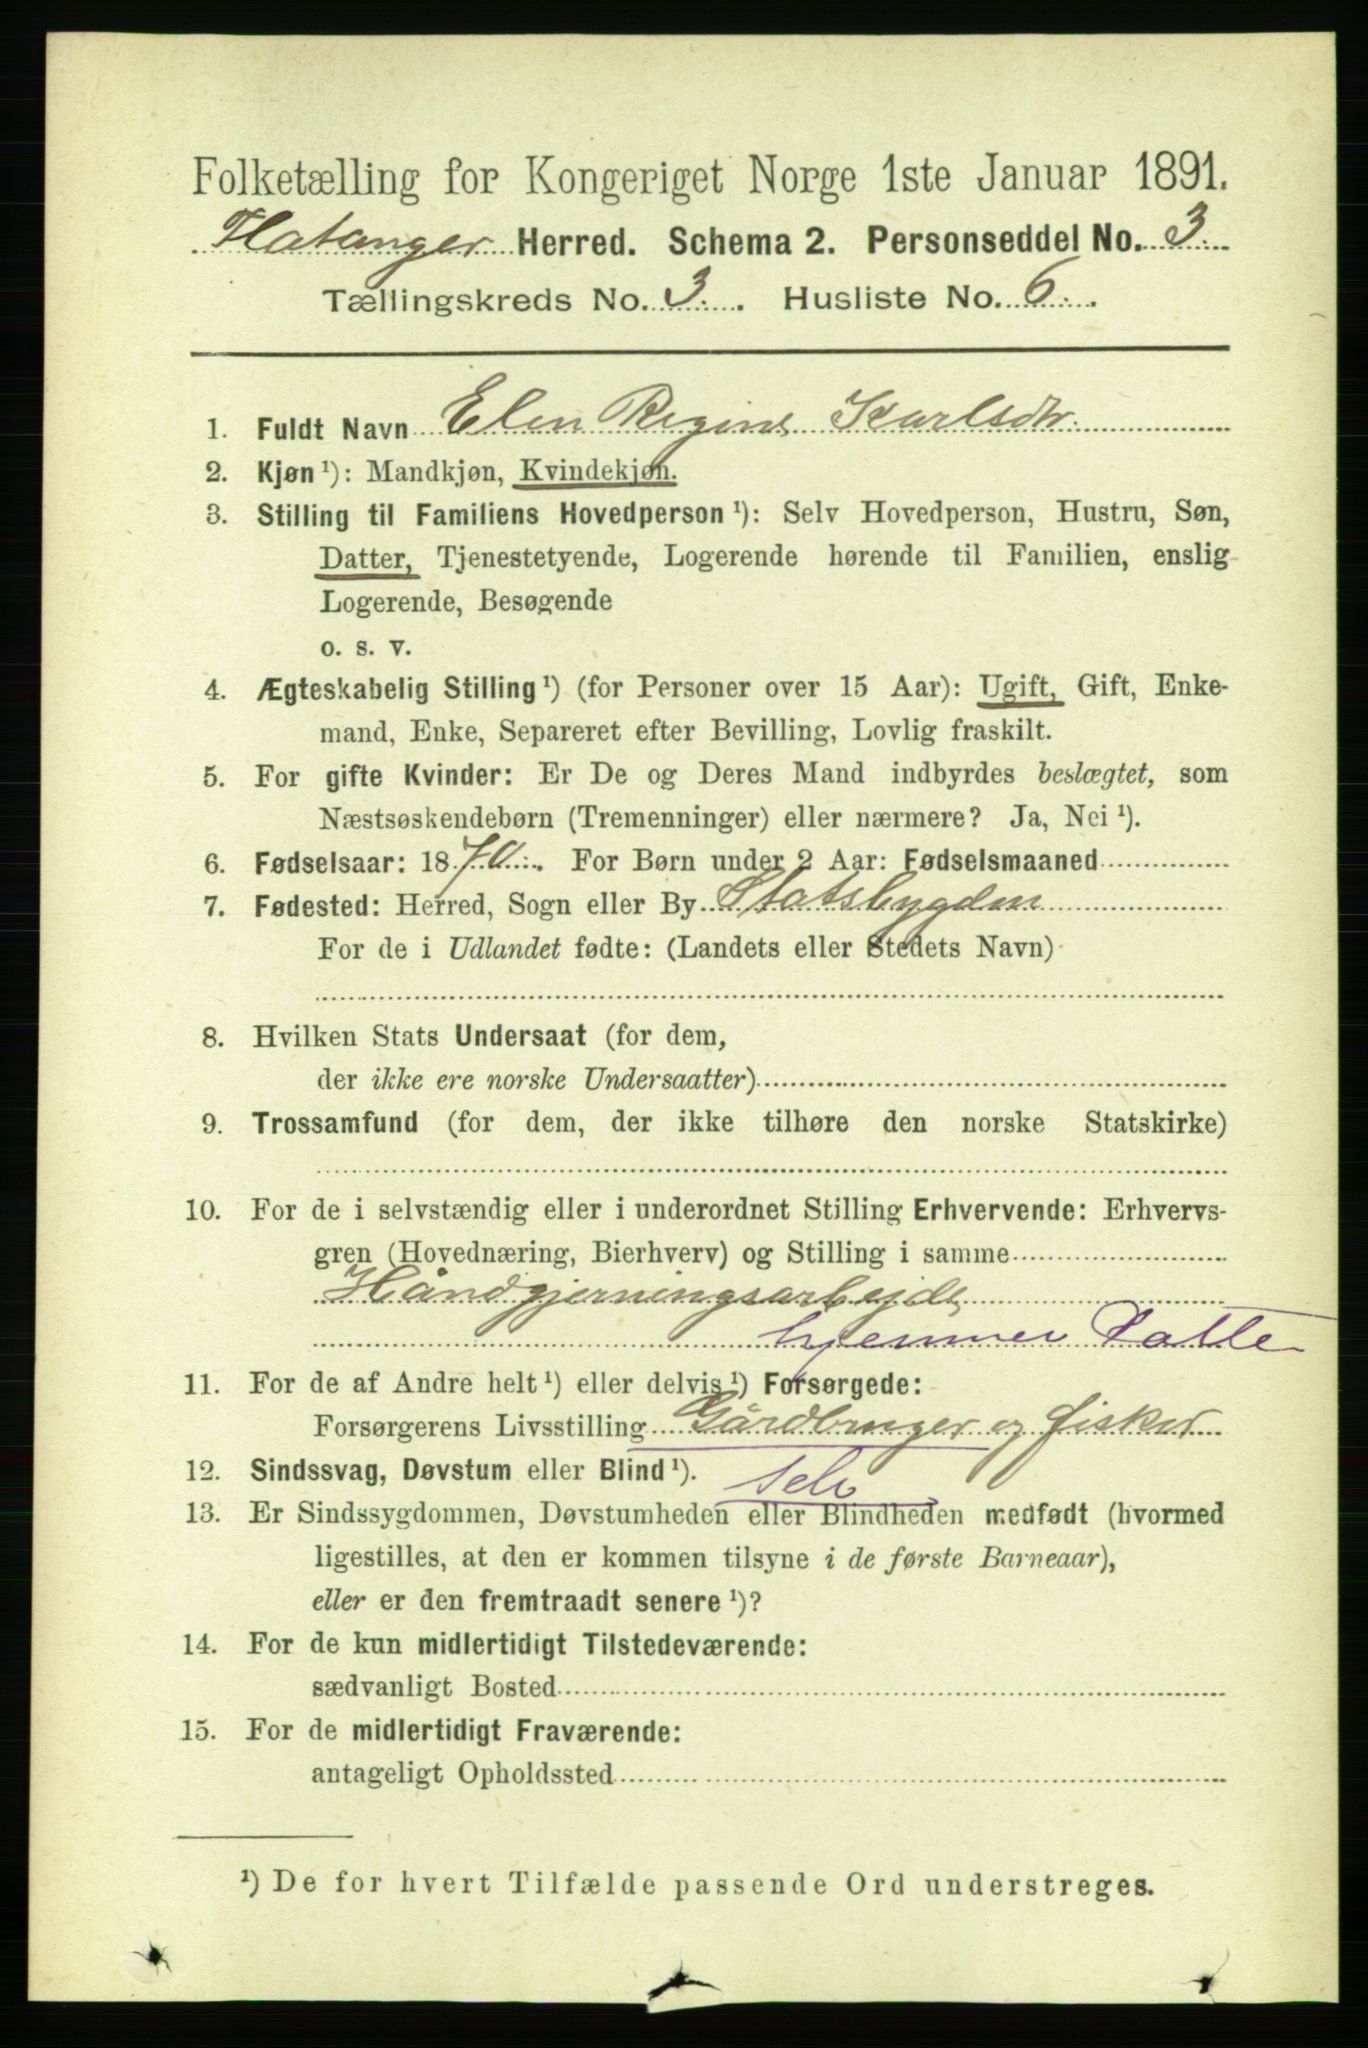 Folketælling for Kongeriget Norge 1ste Januar 1891.
Flatanger Herred. Schema 2. Personseddel No. 3.
Tællingskreds No. 3. Husliste No. 6.
1. Fuldt Navn Elen Regine Karlsdtr.
2. Kjøn ¹): Mandkjøn, Kvindekjøn.
3. Stilling til Familiens Hovedperson ¹): Selv Hovedperson, Hustru, Søn,
Datter, Tjenestetyende, Logerende hørende til Familien, enslig
Logerende, Besøgende
o. s. v.
4. Ægteskabelig Stilling ¹) (for Personer over 15 Aar): Ugift, Gift, Enke-
mand, Enke, Separeret efter Bevilling, Lovlig fraskilt.
5. For gifte Kvinder: Er De og Deres Mand indbyrdes beslægtet, som
Næstsøskendebørn (Tremenninger) eller nærmere? Ja, Nei ¹).
6. Fødselsaar: 1870. For Børn under 2 Aar: Fødselsmaaned
7. Fødested: Herred, Sogn eller By Statsbygden
For de i Udlandet fødte: (Landets eller Stedets Navn)
8. Hvilken Stats Undersaat (for dem,
der ikke ere norske Undersaatter)
9. Trossamfund (for dem, der ikke tilhøre den norske Statskirke)
10. For de i selvstændig eller i underordnet Stilling Erhvervende: Erhvervs-
gren (Hovednæring, Bierhverv) og Stilling i samme
Håndgjerningsarbejde
hjemmev Datter
11. For de af Andre helt ¹) eller delvis ¹) Forsørgede:
Forsørgerens Livsstilling Gårdbruger og fisker
12. Sindssvag, Døvstum eller Blind ¹). Selv
13. Er Sindssygdommen, Døvstumheden eller Blindheden medfødt (hvormed
ligestilles, at den er kommen tilsyne i de første Barneaar),
eller er den fremtraadt senere ¹)?
14. For de kun midlertidigt Tilstedeværende:
sædvanligt Bosted
15. For de midlertidigt Fraværende:
antageligt Opholdssted
¹) De for hvert Tilfælde passende Ord understreges.